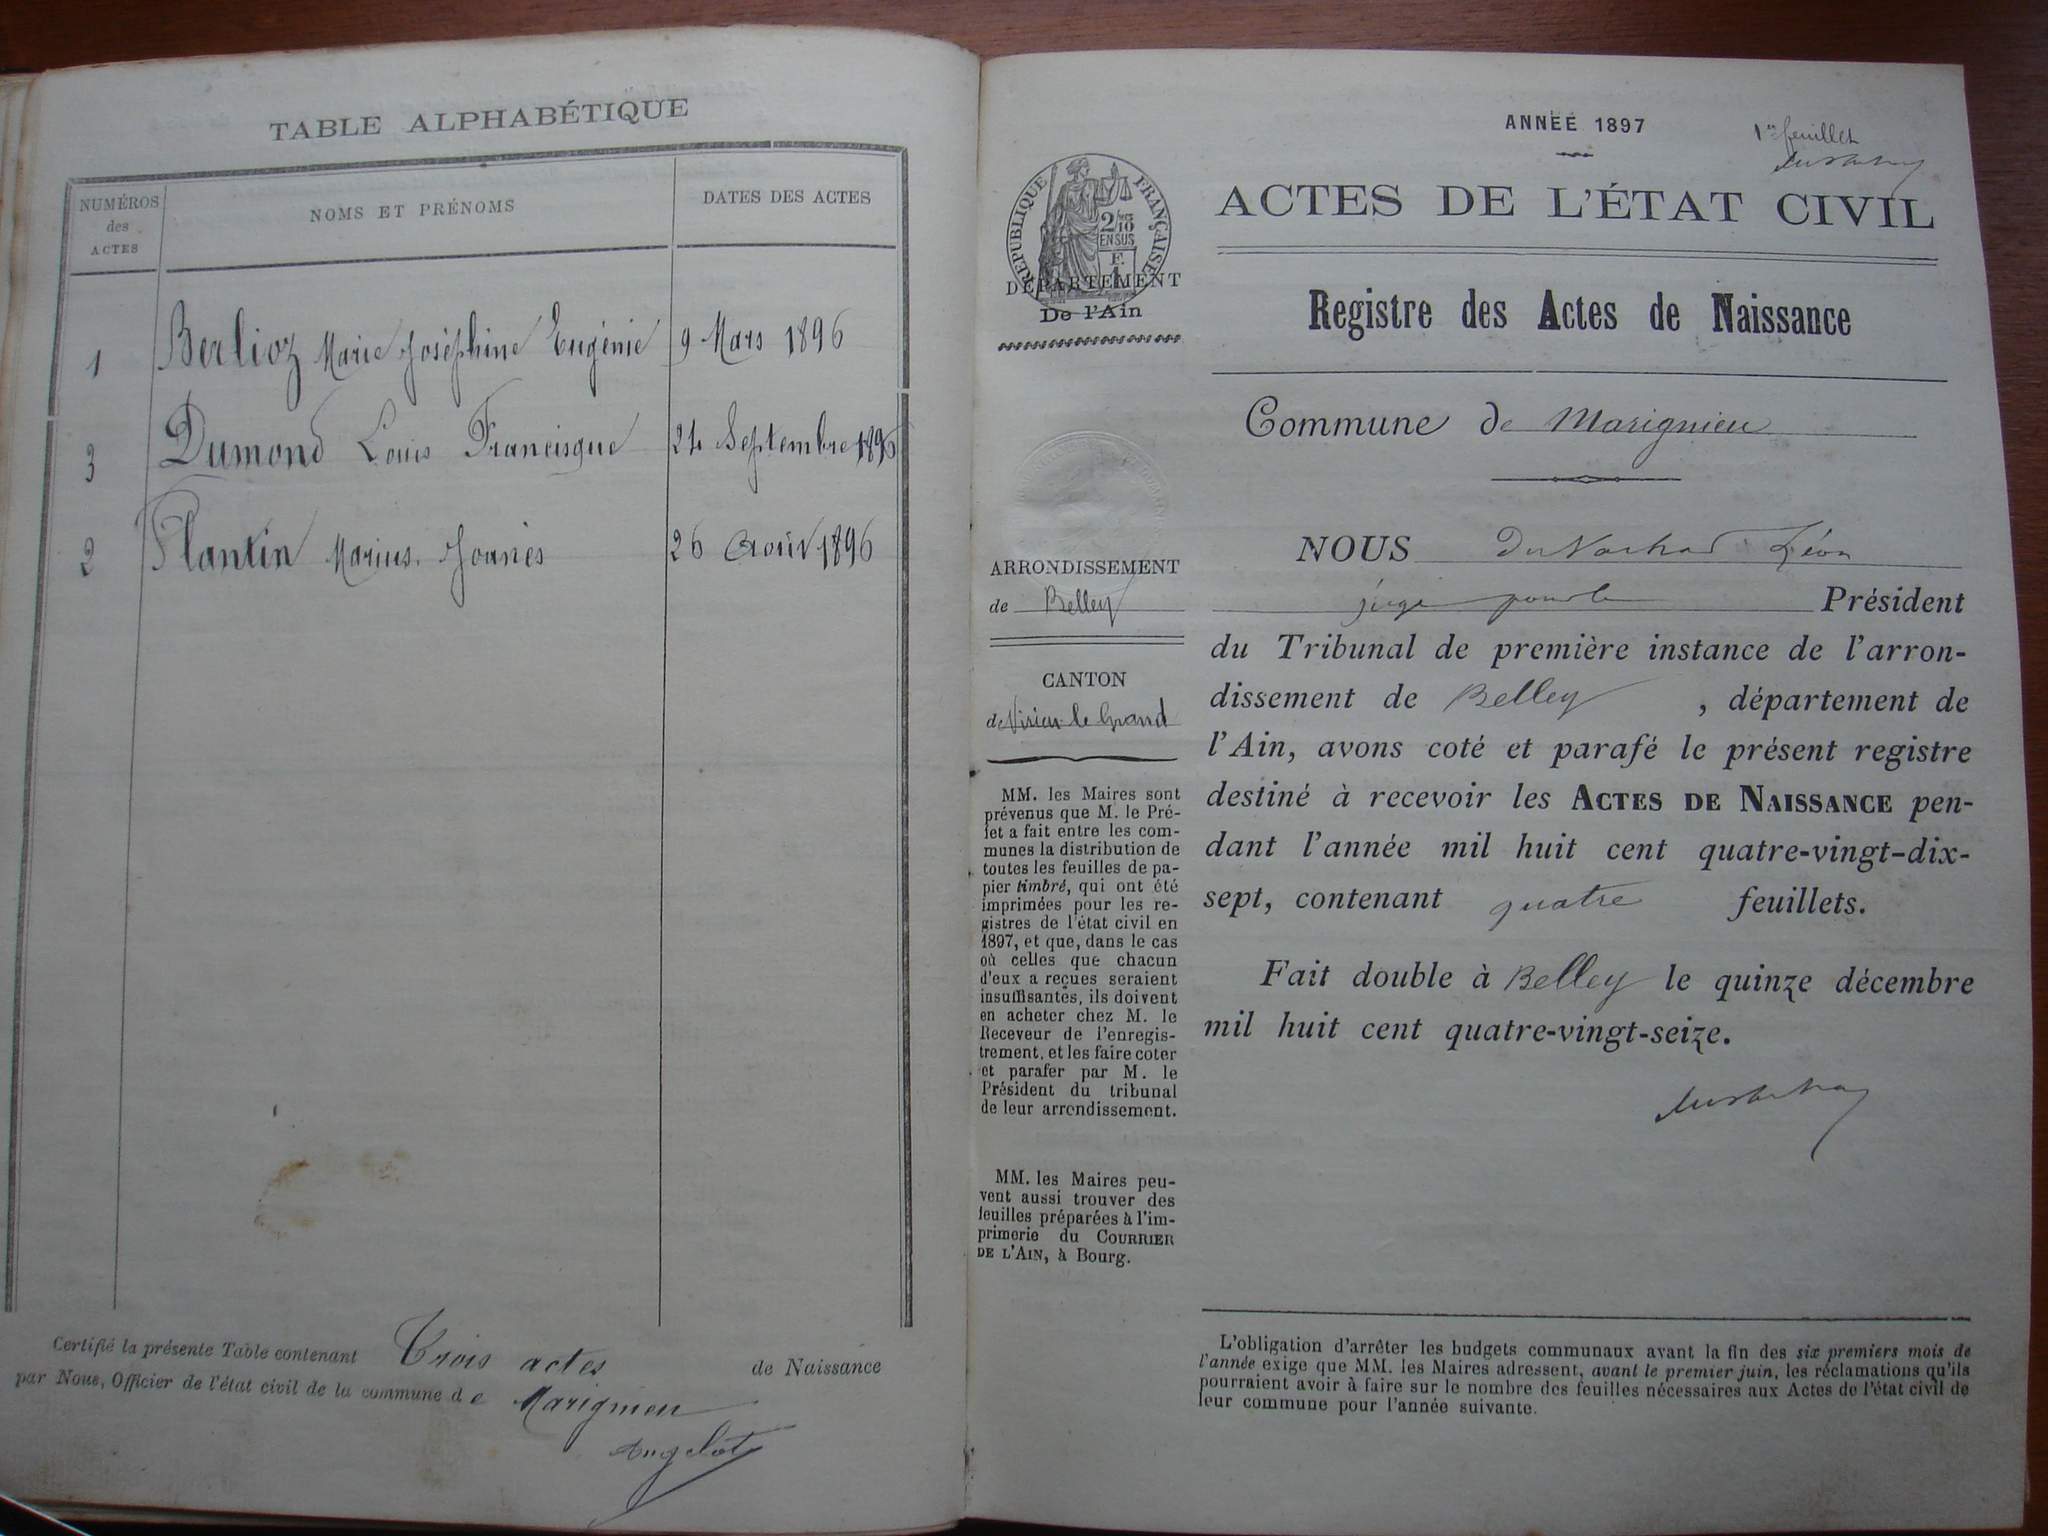 TABLE ALPHABÉTIQUE
NUMÉROS
des
ACTES
NOMS ET PRÉNOMS
DATES DES ACTES
1 Berlioz Marie Joséphine Eugénie 9 Mars 1896
3 Dumond Louis Francisque 24 Septembre 1896
2 Plantin Marius Joanès 26 Août 1896
Certifié la présente Table contenant Trois actes de Naissance
par Nous, Officier de l'état civil de la commune de Marignieu
Angelot
ANNÉE 1897
1er feuillet
RÉPUBLIQUE FRANÇAISE
2/10
EN SUS
F.
1
DÉPARTEMENT
De l'Ain
ARRONDISSEMENT
de Belley
CANTON
de Virieu le Grand
MM. les Maires sont
prévenus que M. le Pré-
fet a fait entre les com-
munes la distribution de
toutes les feuilles de pa-
pier timbré, qui ont été
imprimées pour les re-
gistres de l'état civil en
1897, et que, dans le cas
où celles que chacun
d'eux a reçues seraient
insuffisantes, ils doivent
en acheter chez M. le
Receveur de l'enregis-
trement, et les faire coter
et parafer par M. le
Président du tribunal
de leur arrondissement.
MM. les Maires peu-
vent aussi trouver des
feuilles préparées à l'im-
primerie du COURRIER
DE L'AIN, à Bourg.
ACTES DE L'ÉTAT CIVIL
Registre des Actes de Naissance
Commune de Marignieu
NOUS Léon
juge pour le Président
du Tribunal de première instance de l'arron-
dissement de Belley, département de
l'Ain, avons coté et parafé le présent registre
destiné à recevoir les ACTES DE NAISSANCE pen-
dant l'année mil huit cent quatre-vingt-dix-
sept, contenant quatre feuillets.
Fait double à Belley le quinze décembre
mil huit cent quatre-vingt-seize.
L'obligation d'arrêter les budgets communaux avant la fin des six premiers mois de
l'année exige que MM. les Maires adressent, avant le premier juin, les réclamations qu'ils
pourraient avoir à faire sur le nombre des feuilles nécessaires aux Actes de l'état civil de
leur commune pour l'année suivante.